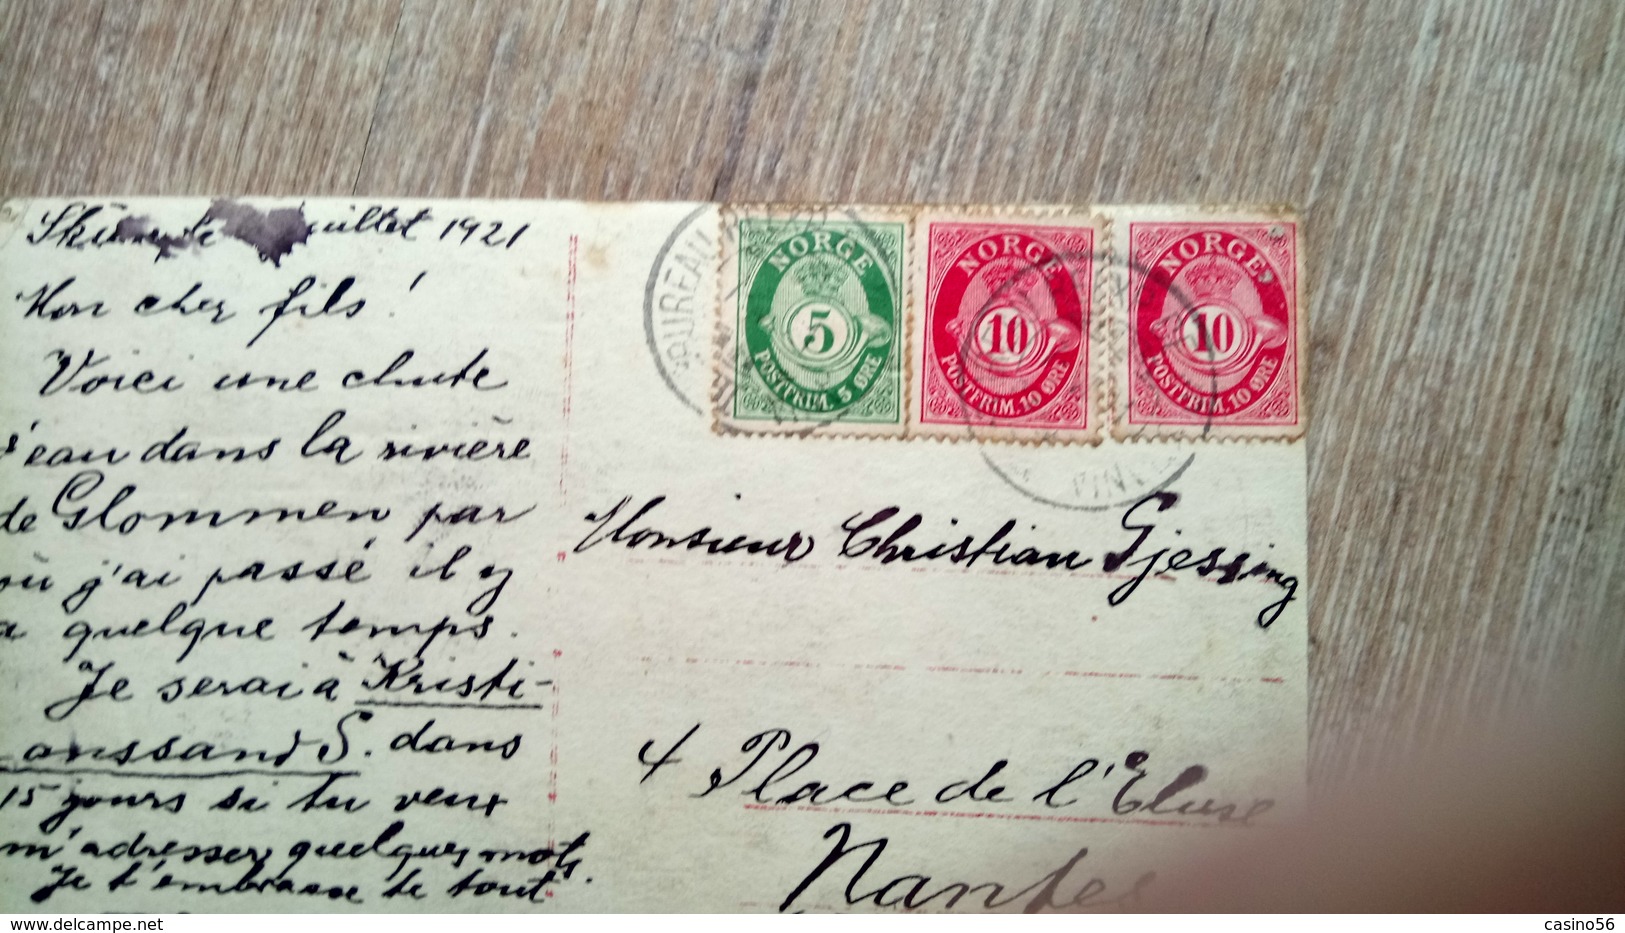 juillet 1921
Mon cher fils!
Voici une chute
d'eau dans la rivière
de Glommen par
où j'ai passé il y
a quelque temps.
Je serai à Kristi-
anssand S. dans
15 jours si tu veux
m'adresser quelques mots.
Je t'embrasse de tout
NORGE
5
POSTFRIM. 5 ØRE
NORGE
10
POSTFRIM. 10 ØRE
NORGE
10
POSTFRIM. 10 ØRE
Monsieur Christian Gjessing
4 Place de l'Ecluse
Nantes
delcampe.net
casino56